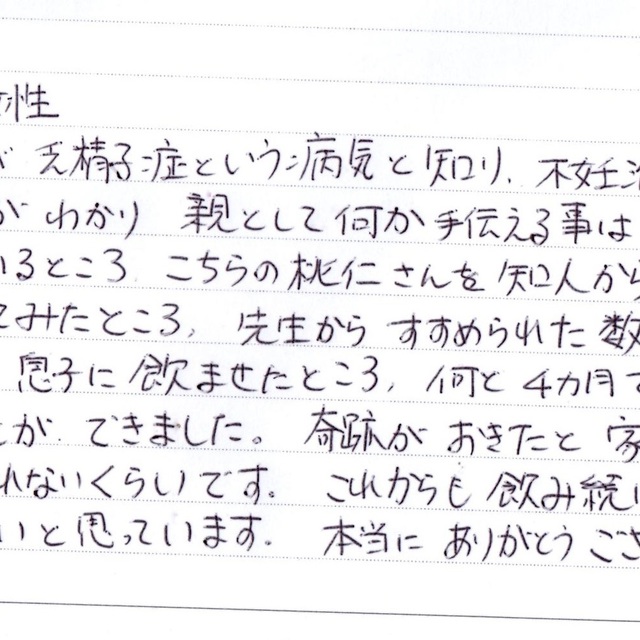 性
が 乏精子症という病気と知り、不妊
がわかり 親として何か手伝える事は
いるところ こちらの桃仁さんを知人から
てみたところ、先生からすすめられた数
息子に飲ませたところ、何と4カ月で
とが できました。奇跡がおきたと家
れないくらいです。これからも飲み続け
いと思っています。本当にありがとうござ